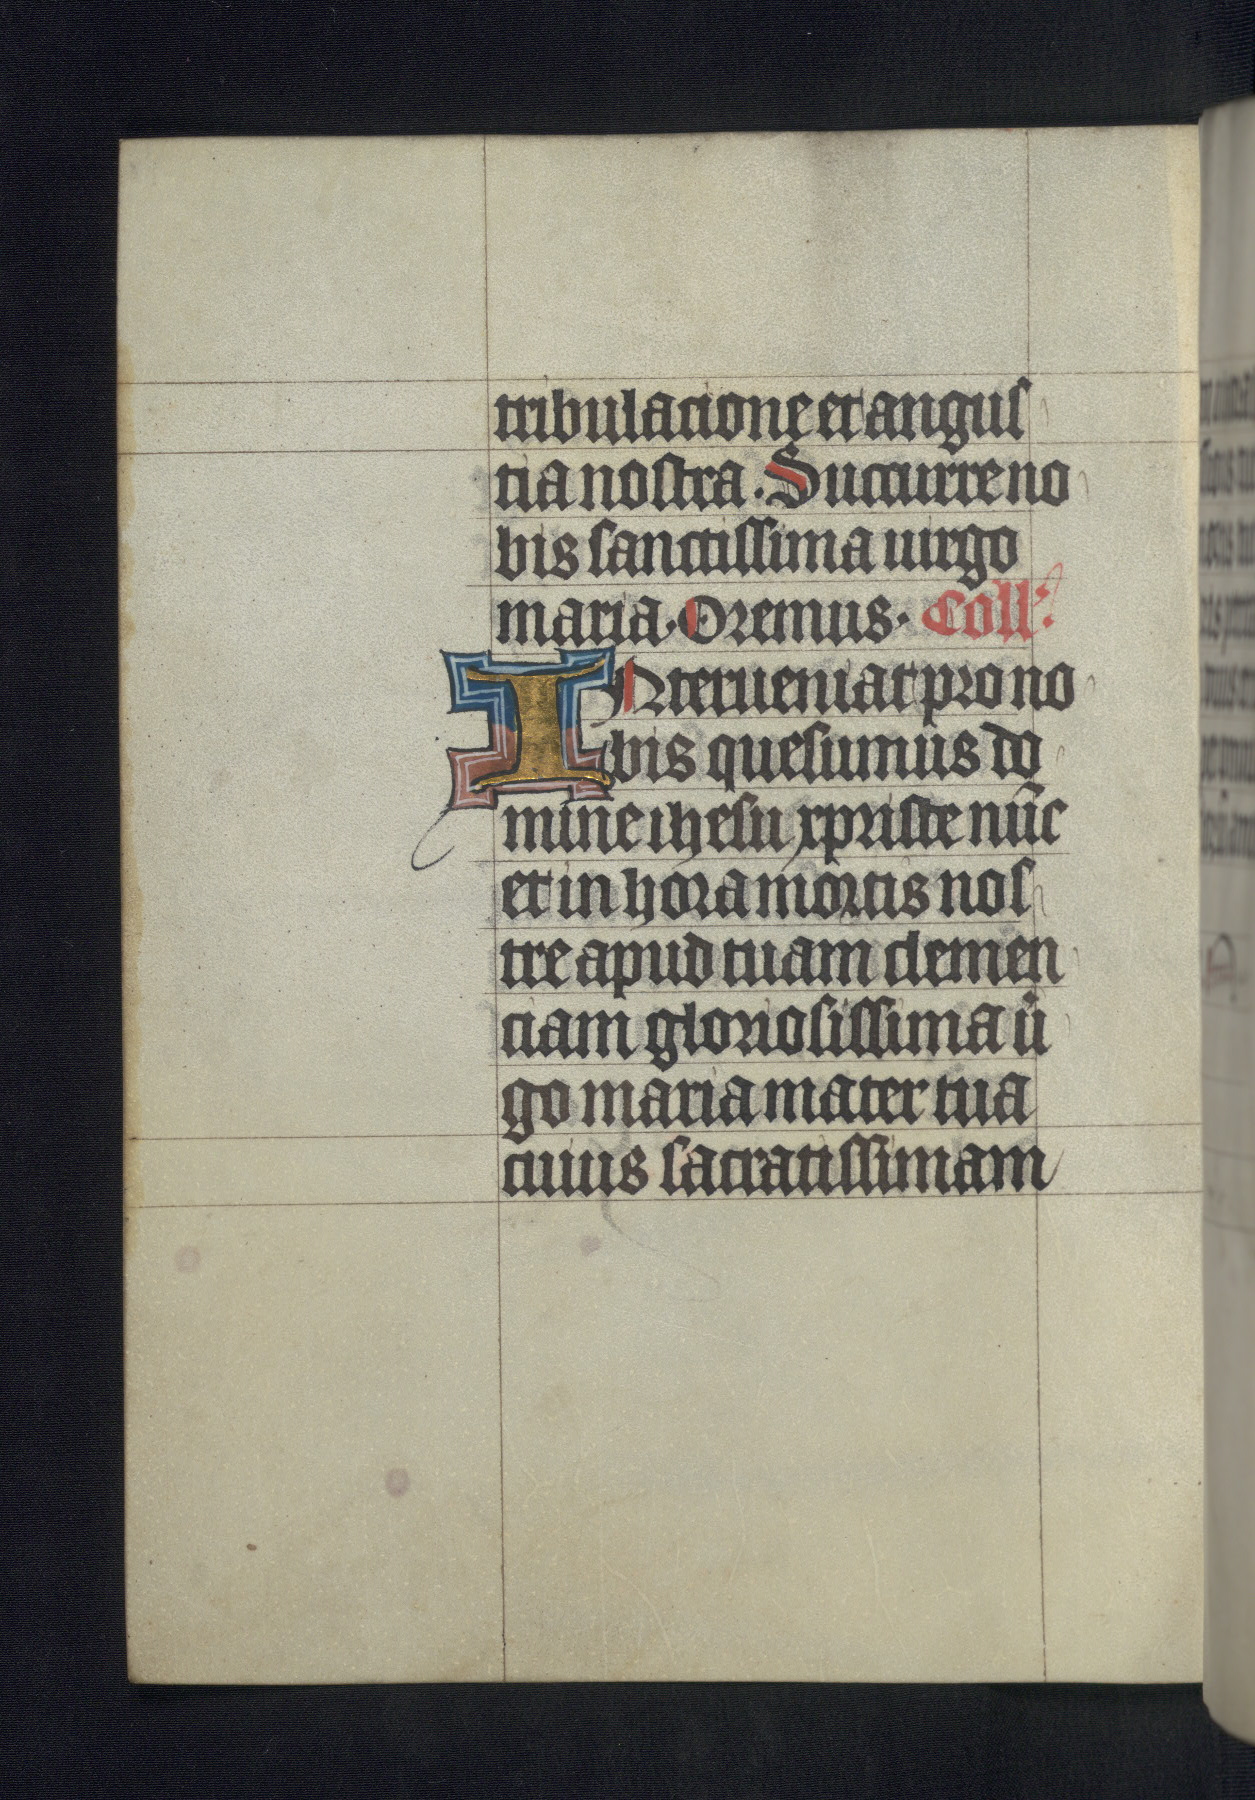 tribulacione et angus
tia nostra. Succurre no
bis sanctissima uirgo
maria. Oremus. Coll'.
INterueniat pro no
bis quesumus do
mine ihesu xpriste nūc
et in hora mortis nos
tre apud tuam clemen
ciam gloriosissima uͥ
go maria mater tua
cuius sacratissimam